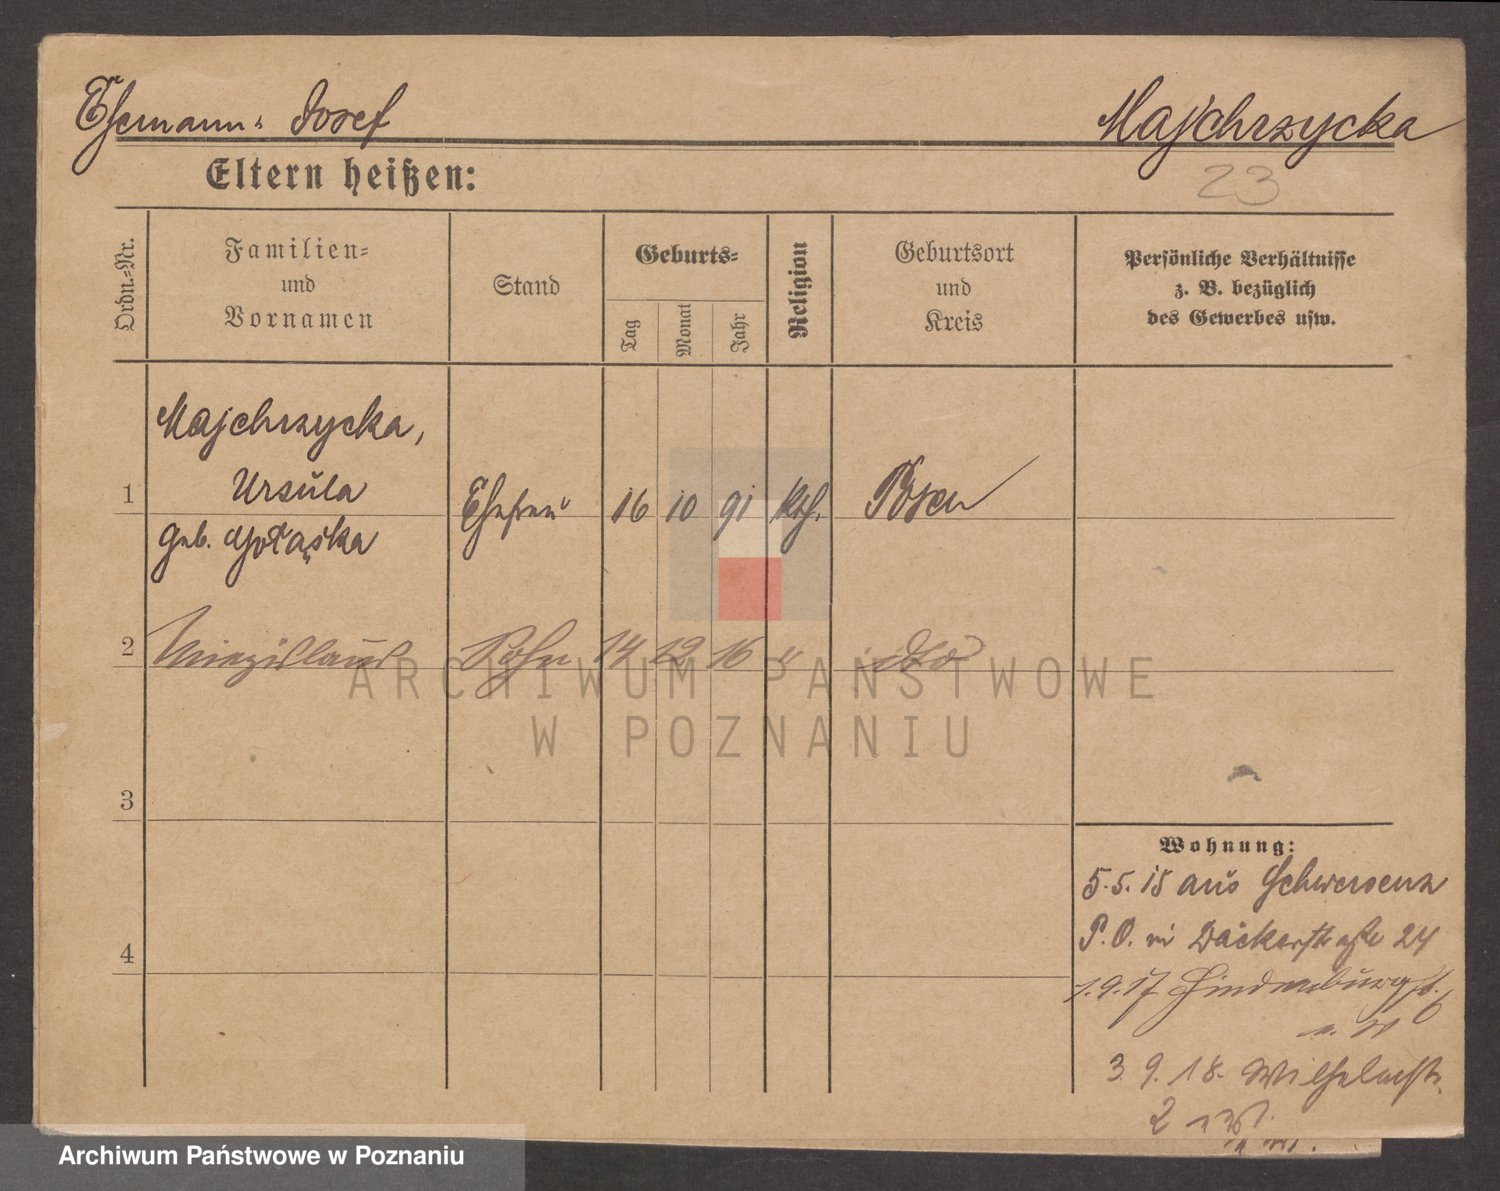 Ehemann: Josef
Majchrzycka
Eltern heißen:
23
Ordn.=Nr.
Familien=
und
Vornamen
Stand
Geburts=
Tag
Monat
Jahr
Religion
Geburtsort
und
Kreis
Persönliche Verhältnisse
z. B. bezüglich
des Gewerbes usw.
Majchrzycka,
1 Ursula Ehefrau 16 10 91 kth. Posen
geb. Gołaska
2 Miezislaus Sohn 14 12 16 " dto
3
4
Wohnung:
5.5.15 aus Schwersenz
P.O. in 24
1.9.17 Hindenburgstr. 6
3.9.18. Wilhelmstr.
2
ARCHIWUM PAŃSTWOWE
W POZNANIU
Archiwum Państwowe w Poznaniu